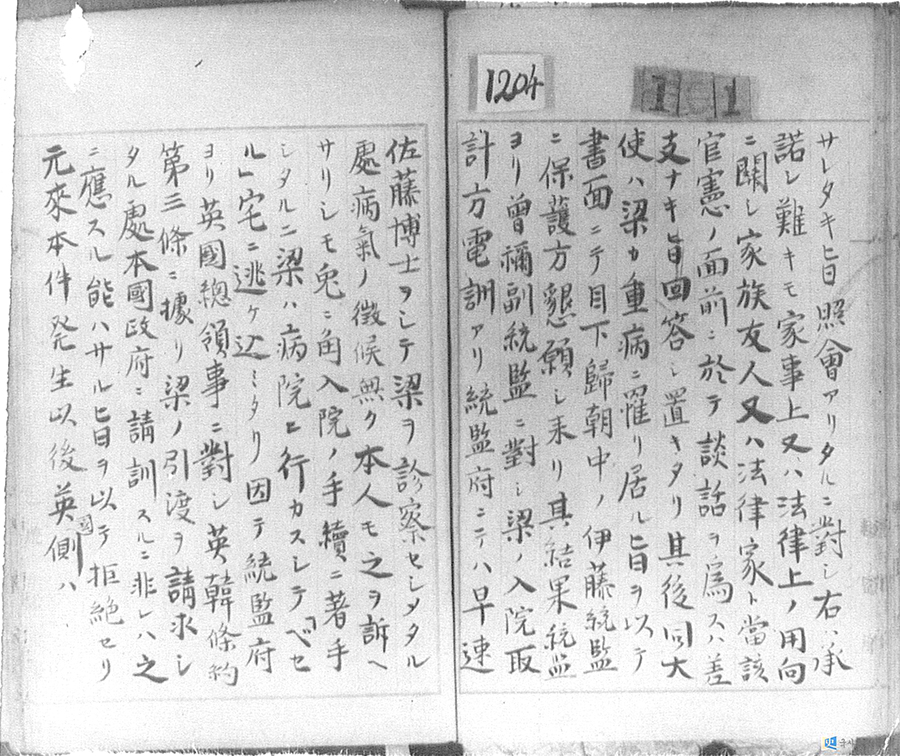 1204
1 1
サレタキ旨照會アリタルニ對シ右ハ承
諾シ難キモ家事上又ハ法律上ノ用向
ニ關シ家族友人又ハ法律家ト當該
官憲ノ面前ニ於テ談話ヲ爲スハ差
支ナキ旨回答シ置キタリ其後同大
使ハ梁カ重病ニ罹リ居ル旨ヲ以テ
書面ニテ目下歸朝中ノ伊藤統監
ニ保護方懇願シ来リ其結果統監
ヨリ曾禰副統監ニ對シ梁ノ入院取
計方電訓アリ統監府ニテハ早速
佐藤博士ヲシテ梁ヲ診察セシメタル
處病氣ノ徴候無ク本人モ之ヲ訴ヘ
サリシモ兎ニ角入院ノ手續ニ著手
シタルニ梁ハ病院ヒ行カスシテ「ベセ
ル」宅ニ逃ケ込ミタリ因テ統監府
ヨリ英國總領事ニ對シ英韓條約
第三條ニ據リ梁ノ引渡ヲ請求シ
タル處本國政府ニ請訓スルニ非レハ之
ニ應スル能ハサル旨ヲ以テ拒絶セリ
元來本件発生以後英國側ハ